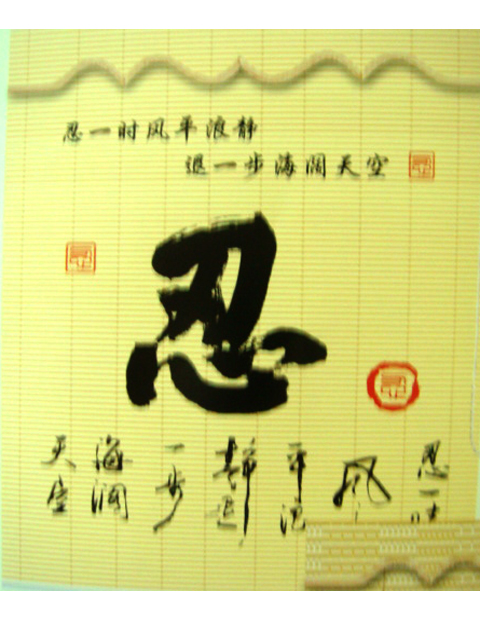 忍一时风平浪静
退一步海阔天空
忍
忍一时
风
平浪
静退
一步
海阔
天空